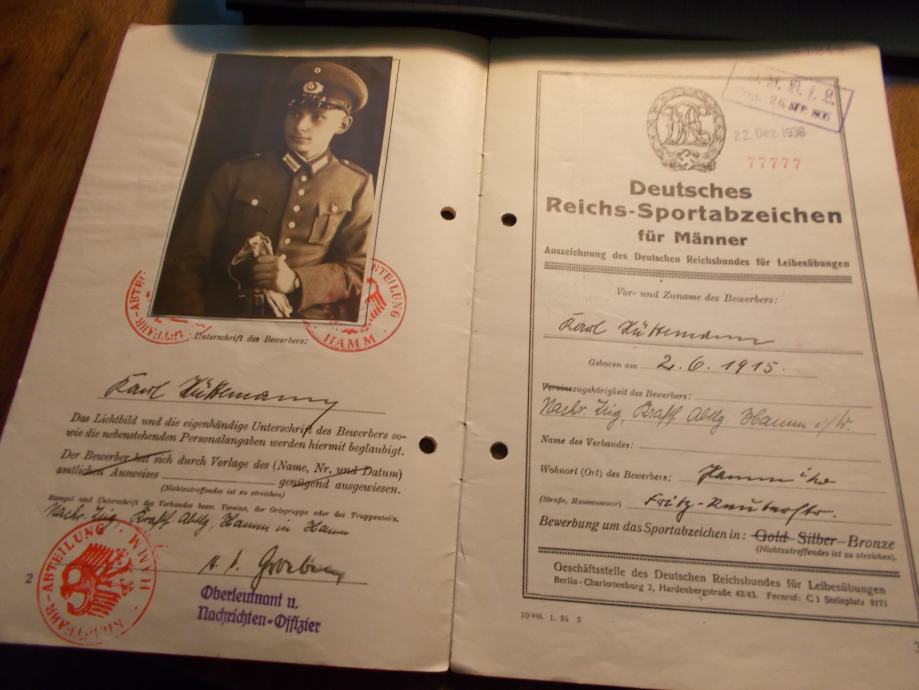 KRAFTFAHR-ABTEILUNG
HAMM
Unterschrift des Bewerbers:
Karl
Das Lichtbild und die eigenhändige Unterschrift des Bewerbers so-
wie die nebenstehenden Personalangaben werden hiermit beglaubigt.
Der Bewerber hat sich durch Vorlage des (Name, Nr. und Datum)
amtlichen Ausweises genügend ausgewiesen.
(Nichtzutreffendes ist zu streichen)
Stempel und Unterschrift des Verbandes bezw. Vereins, der Ortsgruppe oder des Truppenteils.
Nachr. Zug, Kraftf. Abtlg Hamm in Hamm
KRAFTFAHR-ABTEILUNG HAMM
Oberleutnant u.
Nachrichten-Offizier
2
22. Dez 1936
77777
Deutsches
Reichs-Sportabzeichen
für Männer
Auszeichnung des Deutschen Reichsbundes für Leibesübungen
Vor- und Zuname des Bewerbers:
Karl
Geboren am 2.6.1915.
Vereinszugehörigkeit des Bewerbers:
Nachr. Zug, Kraftf. Abtlg Hamm i/W.
Name des Verbandes:
Wohnort (Ort) des Bewerbers: Hamm
(Straße, Hausnummer) Fritz-Reuterstr.
Bewerbung um das Sportabzeichen in: Gold Silber - Bronze
(Nichtzutreffendes ist zu streichen).
Geschäftsstelle des Deutschen Reichsbundes für Leibesübungen
Berlin-Charlottenburg 2, Hardenbergstraße 42/43. Fernruf: C 1 Steinplatz 8171
10 000. 1. 35 3
3